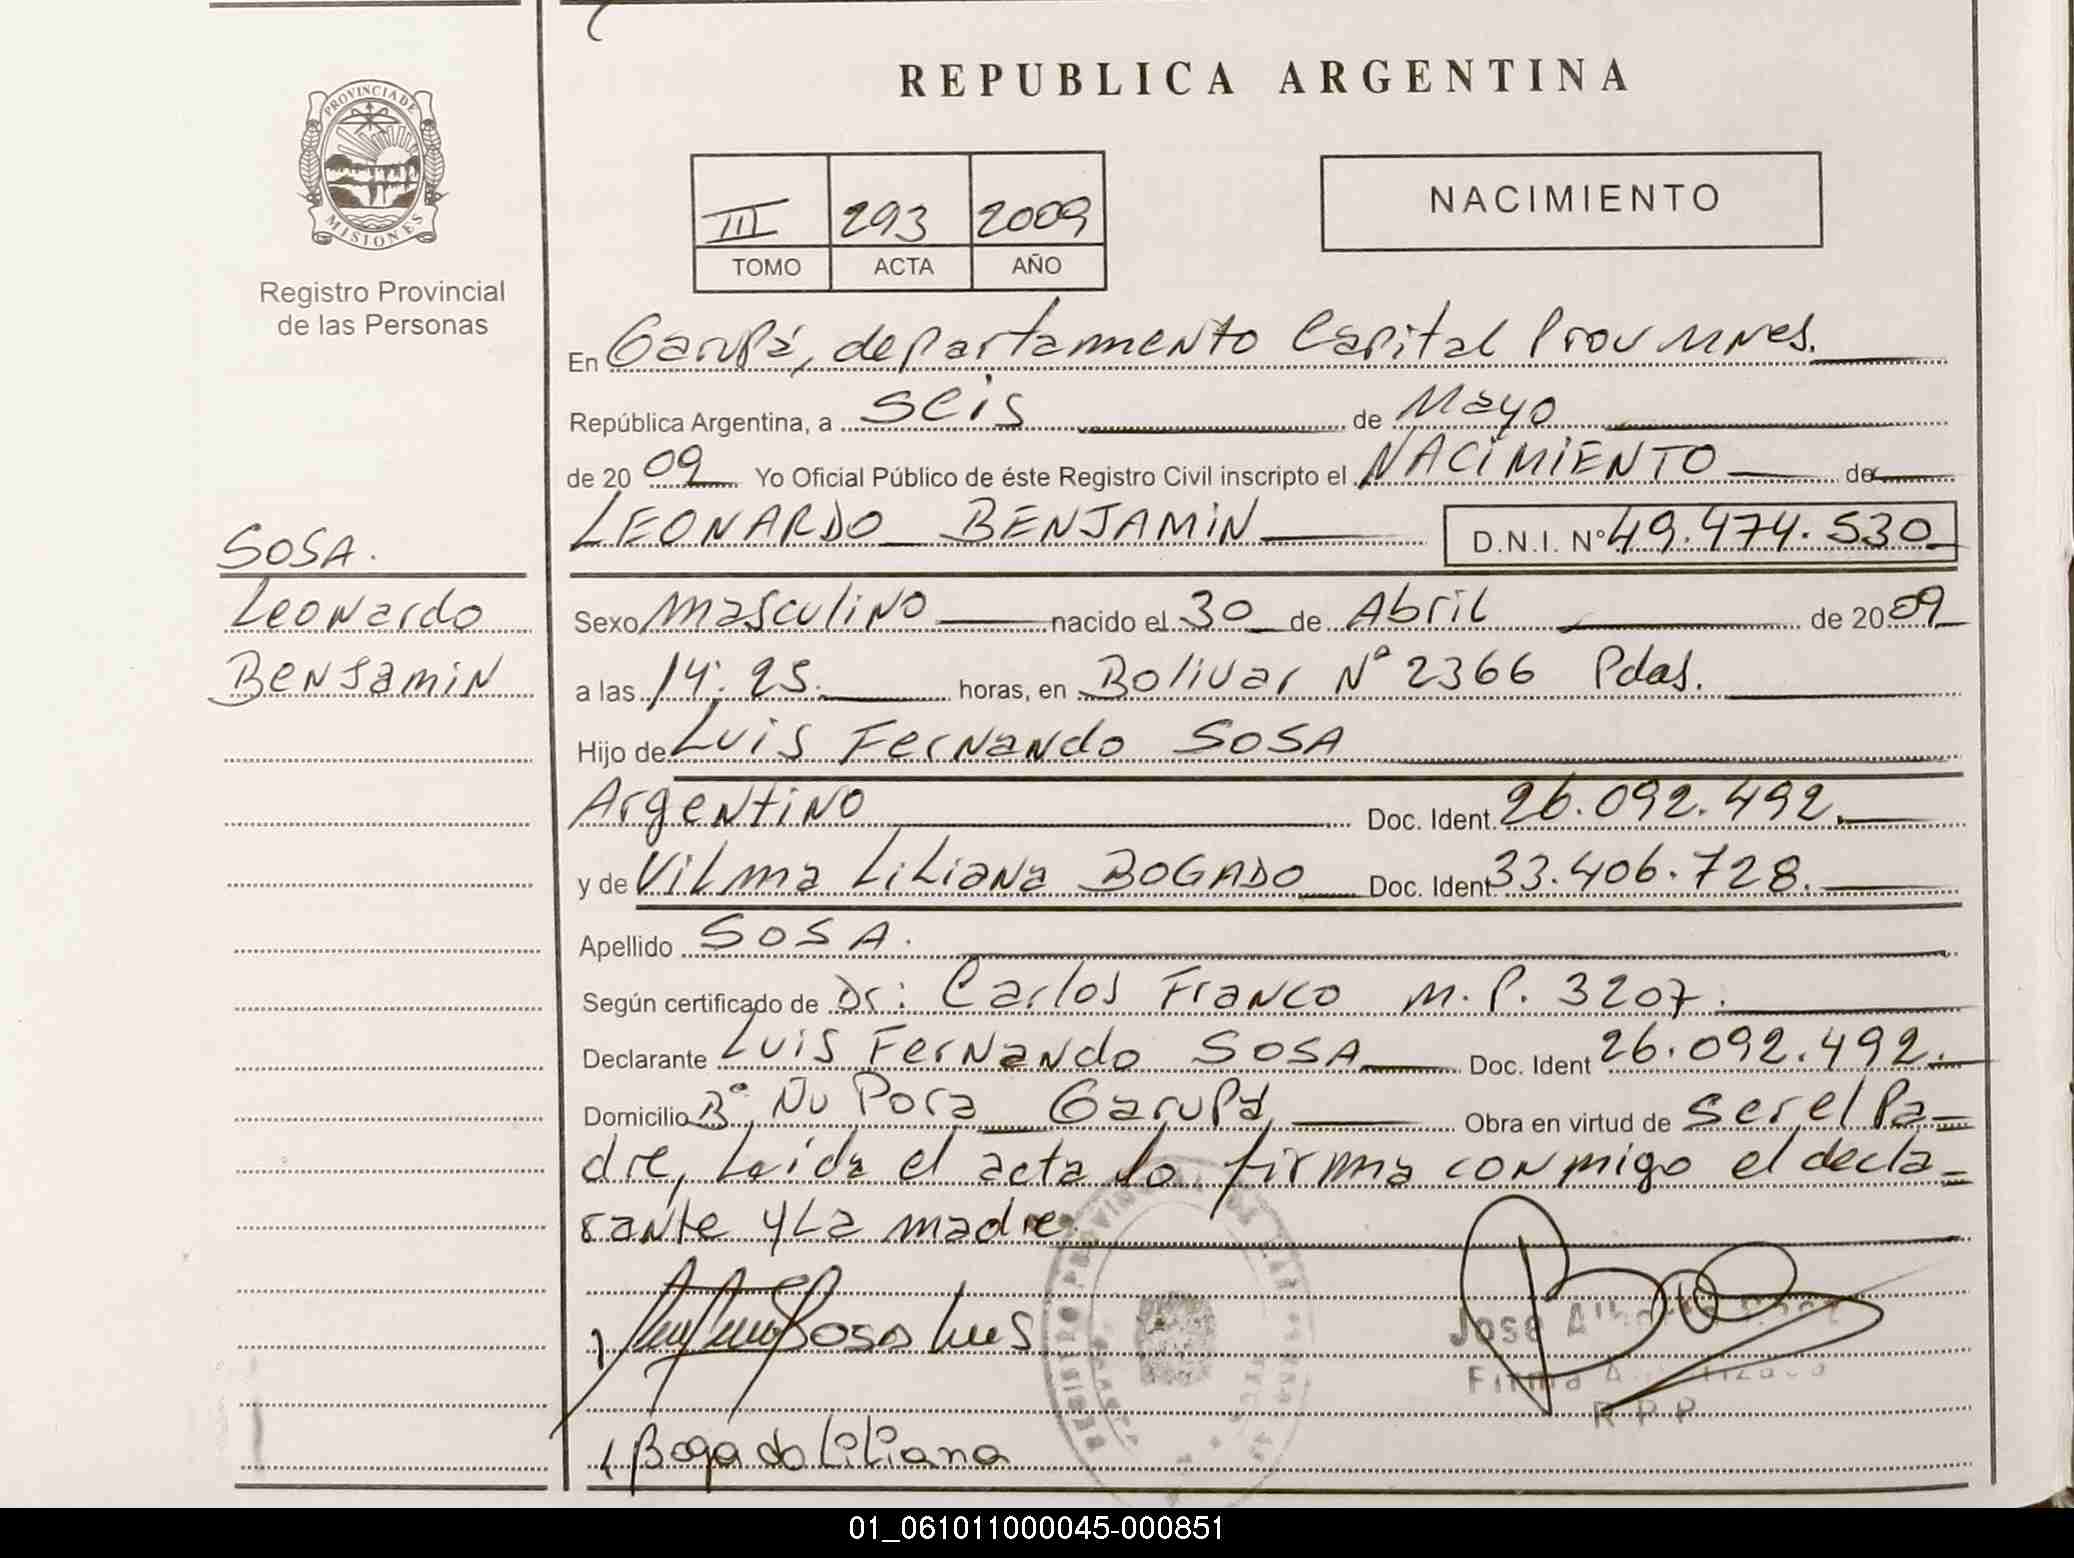 REPUBLICA ARGENTINA
PROVINCIA DE
MISIONES
Registro Provincial
de las Personas
III 293 2009
TOMO ACTA AÑO
NACIMIENTO
En Garupá, departamento Capital Prov Mnes.
República Argentina, a seis de Mayo
de 2009 Yo Oficial Público de éste Registro Civil inscripto el NACIMIENTO de
LEONARDO BENJAMIN D.N.I. Nº 49.474.530
SOSA.
Leonardo
Benjamin
Sexo masculino nacido el 30 de Abril de 2009
a las 14:25. horas, en Bolivar Nº 2366 Pdas.
Hijo de Luis Fernando SOSA
Argentino Doc. Ident. 26.092.492.
y de Vilma Liliana BOGADO Doc. Ident 33.406.728.
Apellido SOSA.
Según certificado de Dr: Carlos Franco M.P. 3207.
Declarante Luis Fernando SOSA Doc. Ident 26.092.492.
Domicilio Bº Ñu Pora Garupá Obra en virtud de ser el Pa=
dre, Leída el acta lo firma conmigo el decla=
rante y La madre.
Sosa Luis
Jose
Firma
R P P
Bogado Liliana
REGISTRO PROVINCIAL DE LAS
01_061011000045-000851